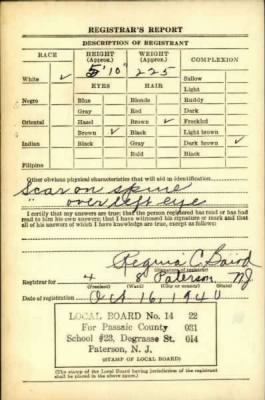 REGISTRAR'S REPORT
DESCRIPTION OF REGISTRANT
RACE HEIGHT (Approx.) WEIGHT (Approx.) COMPLEXION
White ✓ 5'10" 225 Sallow
EYES HAIR Light
Negro Blue Blonde Ruddy
Gray Red Dark
Oriental Hazel Brown ✓ Freckled
Brown ✓ Black Light brown
Indian Black Gray Dark brown ✓
Bald Black
Filipino
Other obvious physical characteristics that will aid in identification
Scar on spine
" over left eye
I certify that my answers are true; that the person registered has read or has had
read to him his own answers; that I have witnessed his signature or mark and that
all of his answers of which I have knowledge are true, except as follows:
Regina C. Baird
(Signature of registrar)
Registrar for 4 Paterson NJ
(Precinct) (Ward) (City or county) (State)
Date of registration Oct 16, 1940
LOCAL BOARD No. 14 22
For Passaic County 031
School #23, Degrasse St. 014
Paterson, N. J.
(STAMP OF LOCAL BOARD)
(The stamp of the Local Board having jurisdiction of the registrant
shall be placed in the above space.)